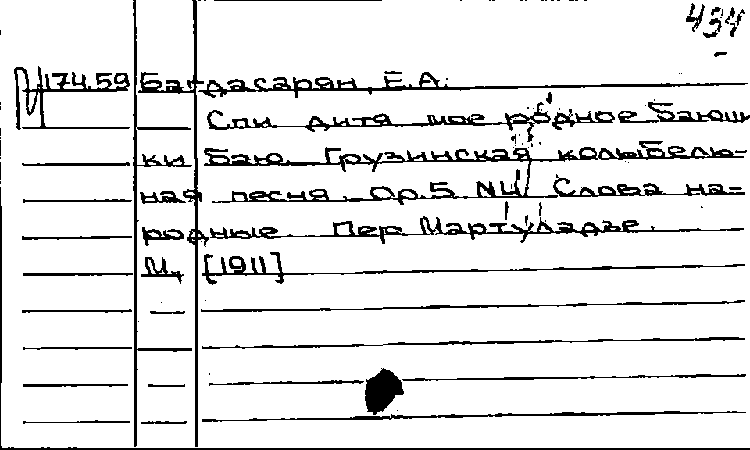 434
174.59 Багдасарян, Е.А.
Спи дитя мое родное баюш
ки баю. Грузинская колыбель-
ная песня. Ор.5. №4 Слова на-
родные. Пер Мартуладзе.
М, [1911]